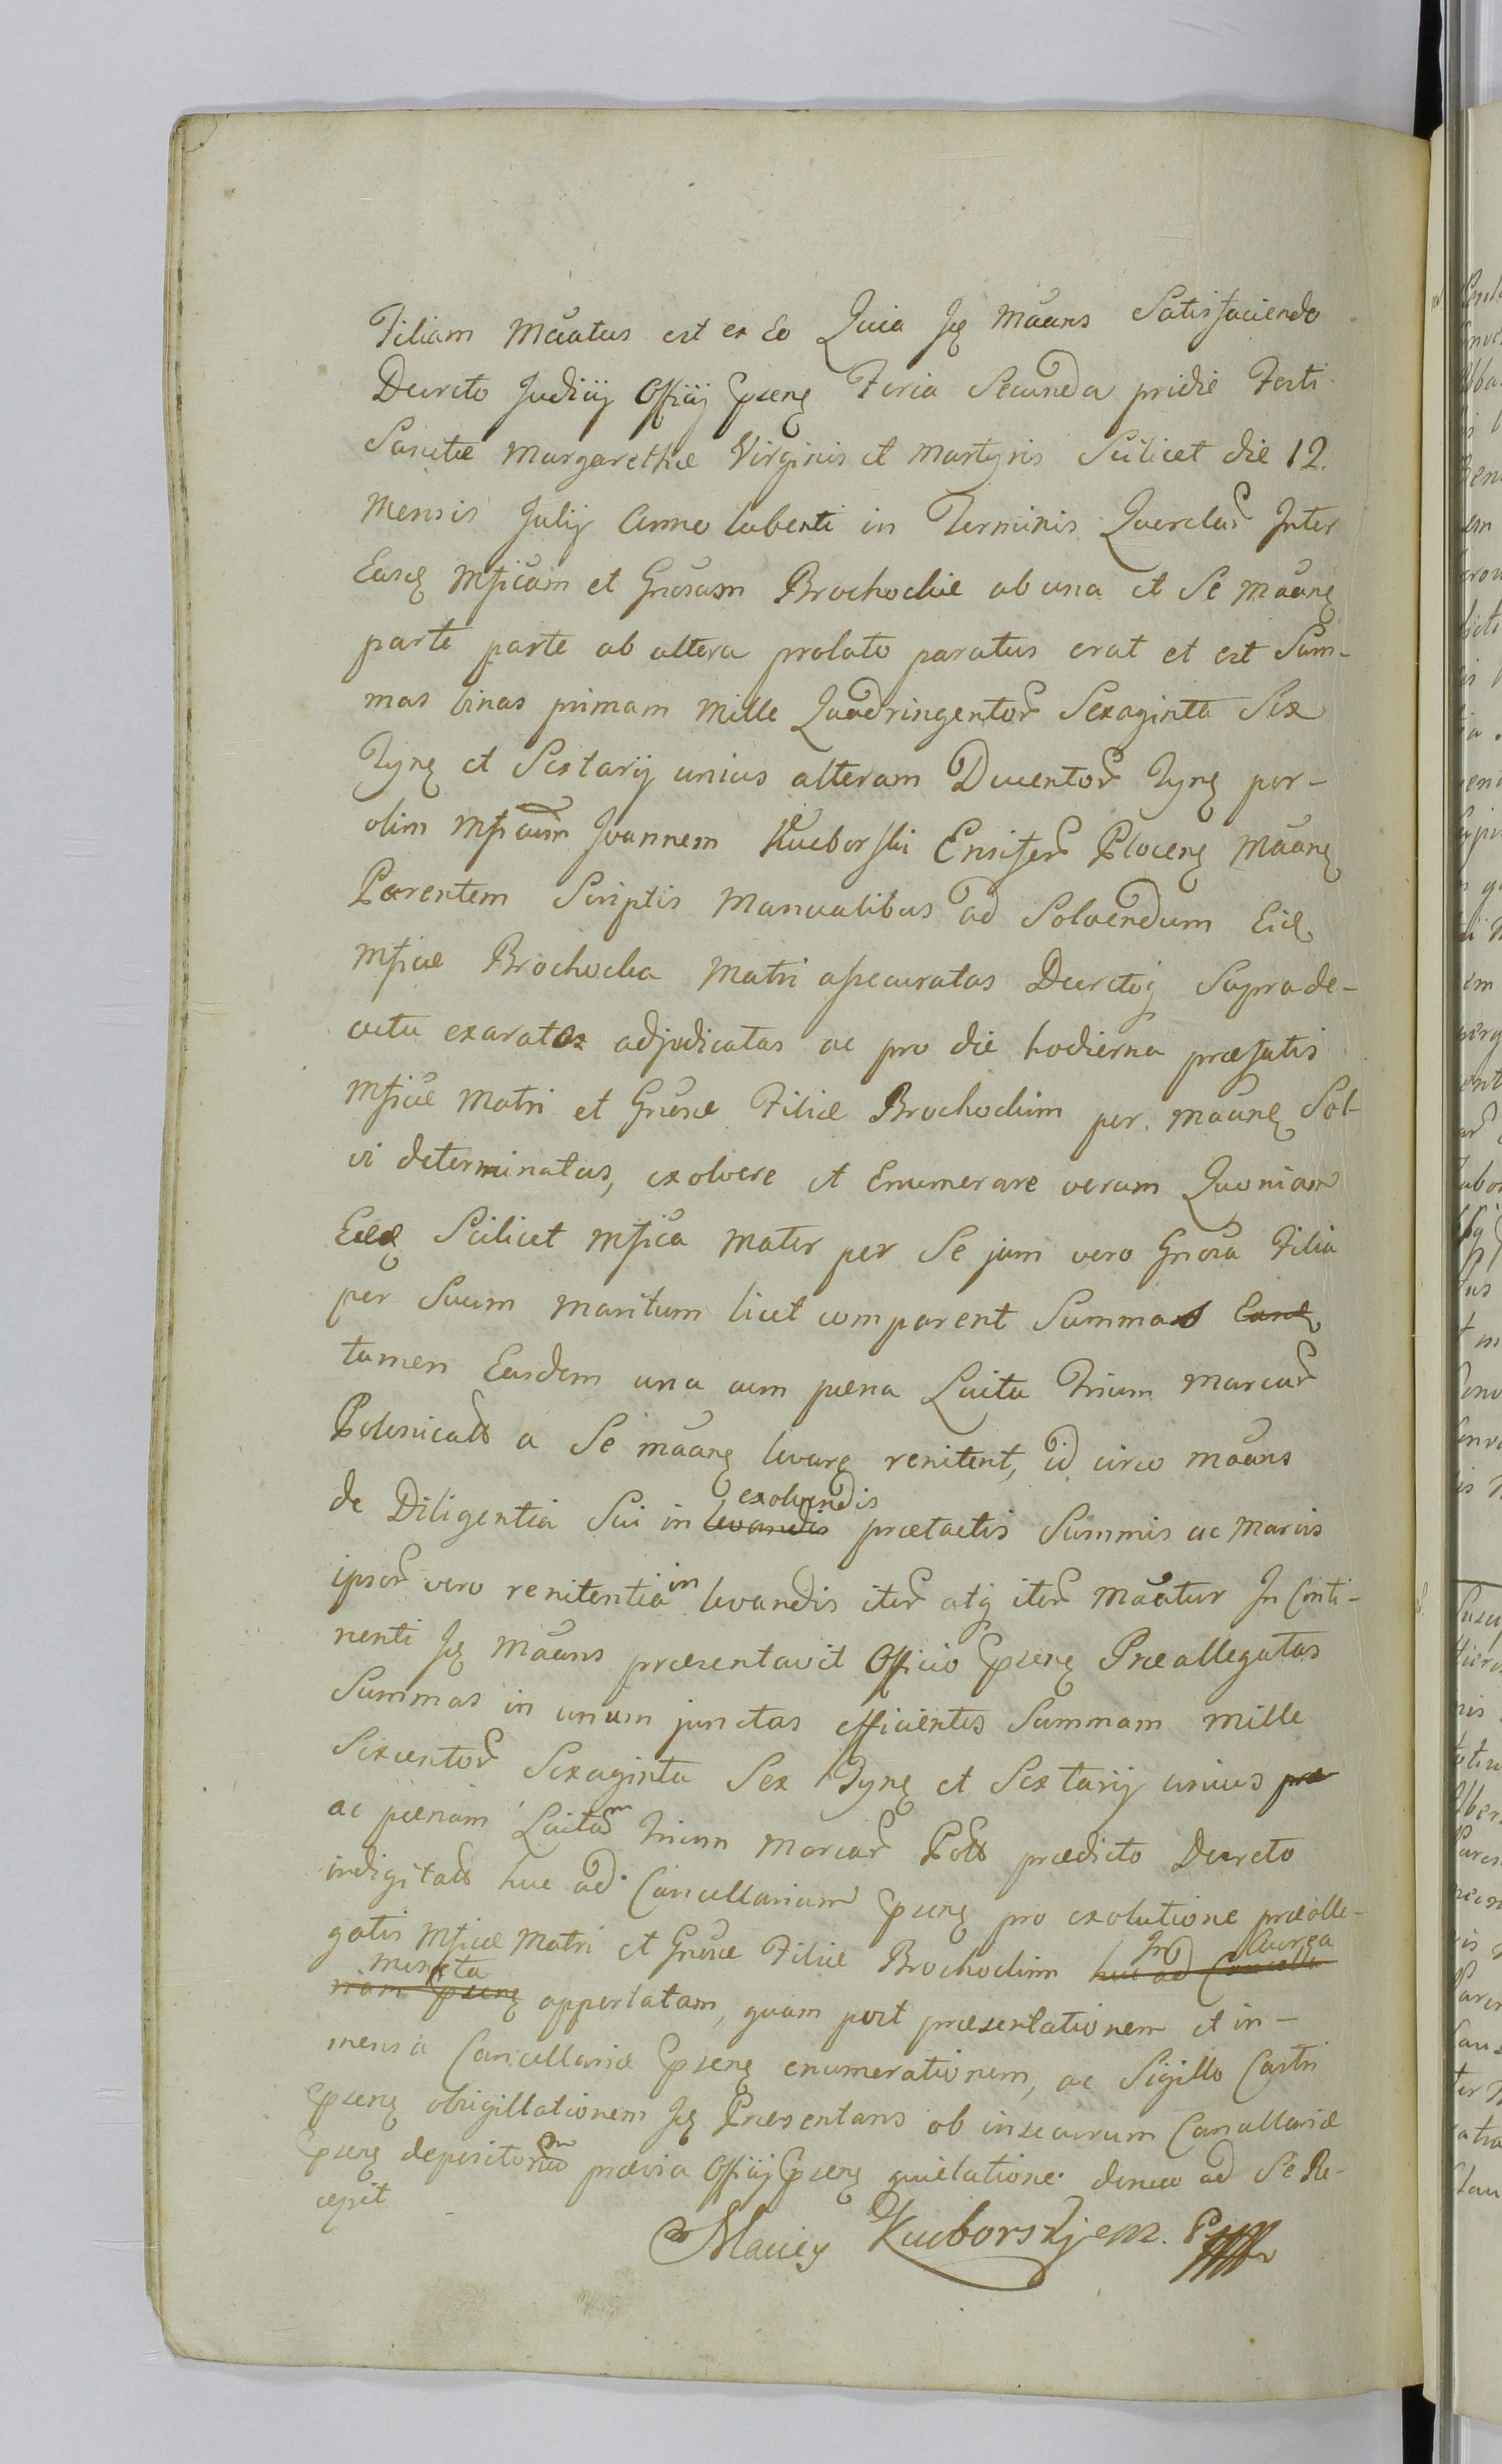 Filiam Maatus est ex Eo Quia Ję Maans Satisfaciendo
Decreto Judicij Officij Cpseng Feria Secunda pridie Festi
Sanctæ Margarethæ Virginis et Martyris Scilicet die 12.
Mensis Julij Anno labenti in Terminis Querelar Inter
Easdę Mficam et Gnosam Brochockie ab una et Se Maang
parte parte ab altera prolato paratus erat et est Sum-
mas binas primam Mille Quadringentor Sexaginta Sex
Tynę et Sextarij unius alteram Ducentor Tynę per-
olim Mficum Joannem Kucborski Ensifer Plocenę Maang
Parentem Scriptis Manualibus ad Solvendum Eid
Mficæ Brochocka Matri assecuratas Decretoq Suprade-
actu exaratas adjudicatas ac pro die hodierna præfatis
Mficæ Matri et Gnosæ Filiæ Brochockim per Maang Sol-
vi determinatas, exolvere et Enumerare verum Quoniam
Eæd Scilicet Mfica Mater per Se jam vero Gnosa Filia
per Suum Maritum licet comparent Summas Easd
tamen Easdem una cum pæna Luita Trium Marcar
Polonicall a Se Maang levare renitent, id circo Maans
de Diligentia Sui in levandis exolvendis prætactis Summis ac Marcis
ipsor vero renitentia in levandis iter atq iter Maatur In Conti-
nenti Ję Maans præsentavit Officio Cpseng Præallegatas
Summas in unum junctas efficientes Summam Mille
Sexcentor Sexaginta Sex Tynę et Sextarij unius præ
ac pænam Luitam trium Marcar Poll prædicto Decreto
indigitall huc ad Cancellariam Cpseng pro exolutione præalle-
gatis Mficæ Matri et Gnosæ Filiæ Brochockim huc ad Cancella In Aurea
riam Cpseng Moneta apportatam, quam post præsentationem et in-
mensa Cancellariæ Cpseng enumerationem, ac Sigillo Castri
Cpseng obsigillationem Ję Præsentans ob insecurum Cancellariæ
Cpseng depositorium prævia Officij Cpseng quietatione denuo ad Se Re-
cepit
Maciey Kucborski mp.